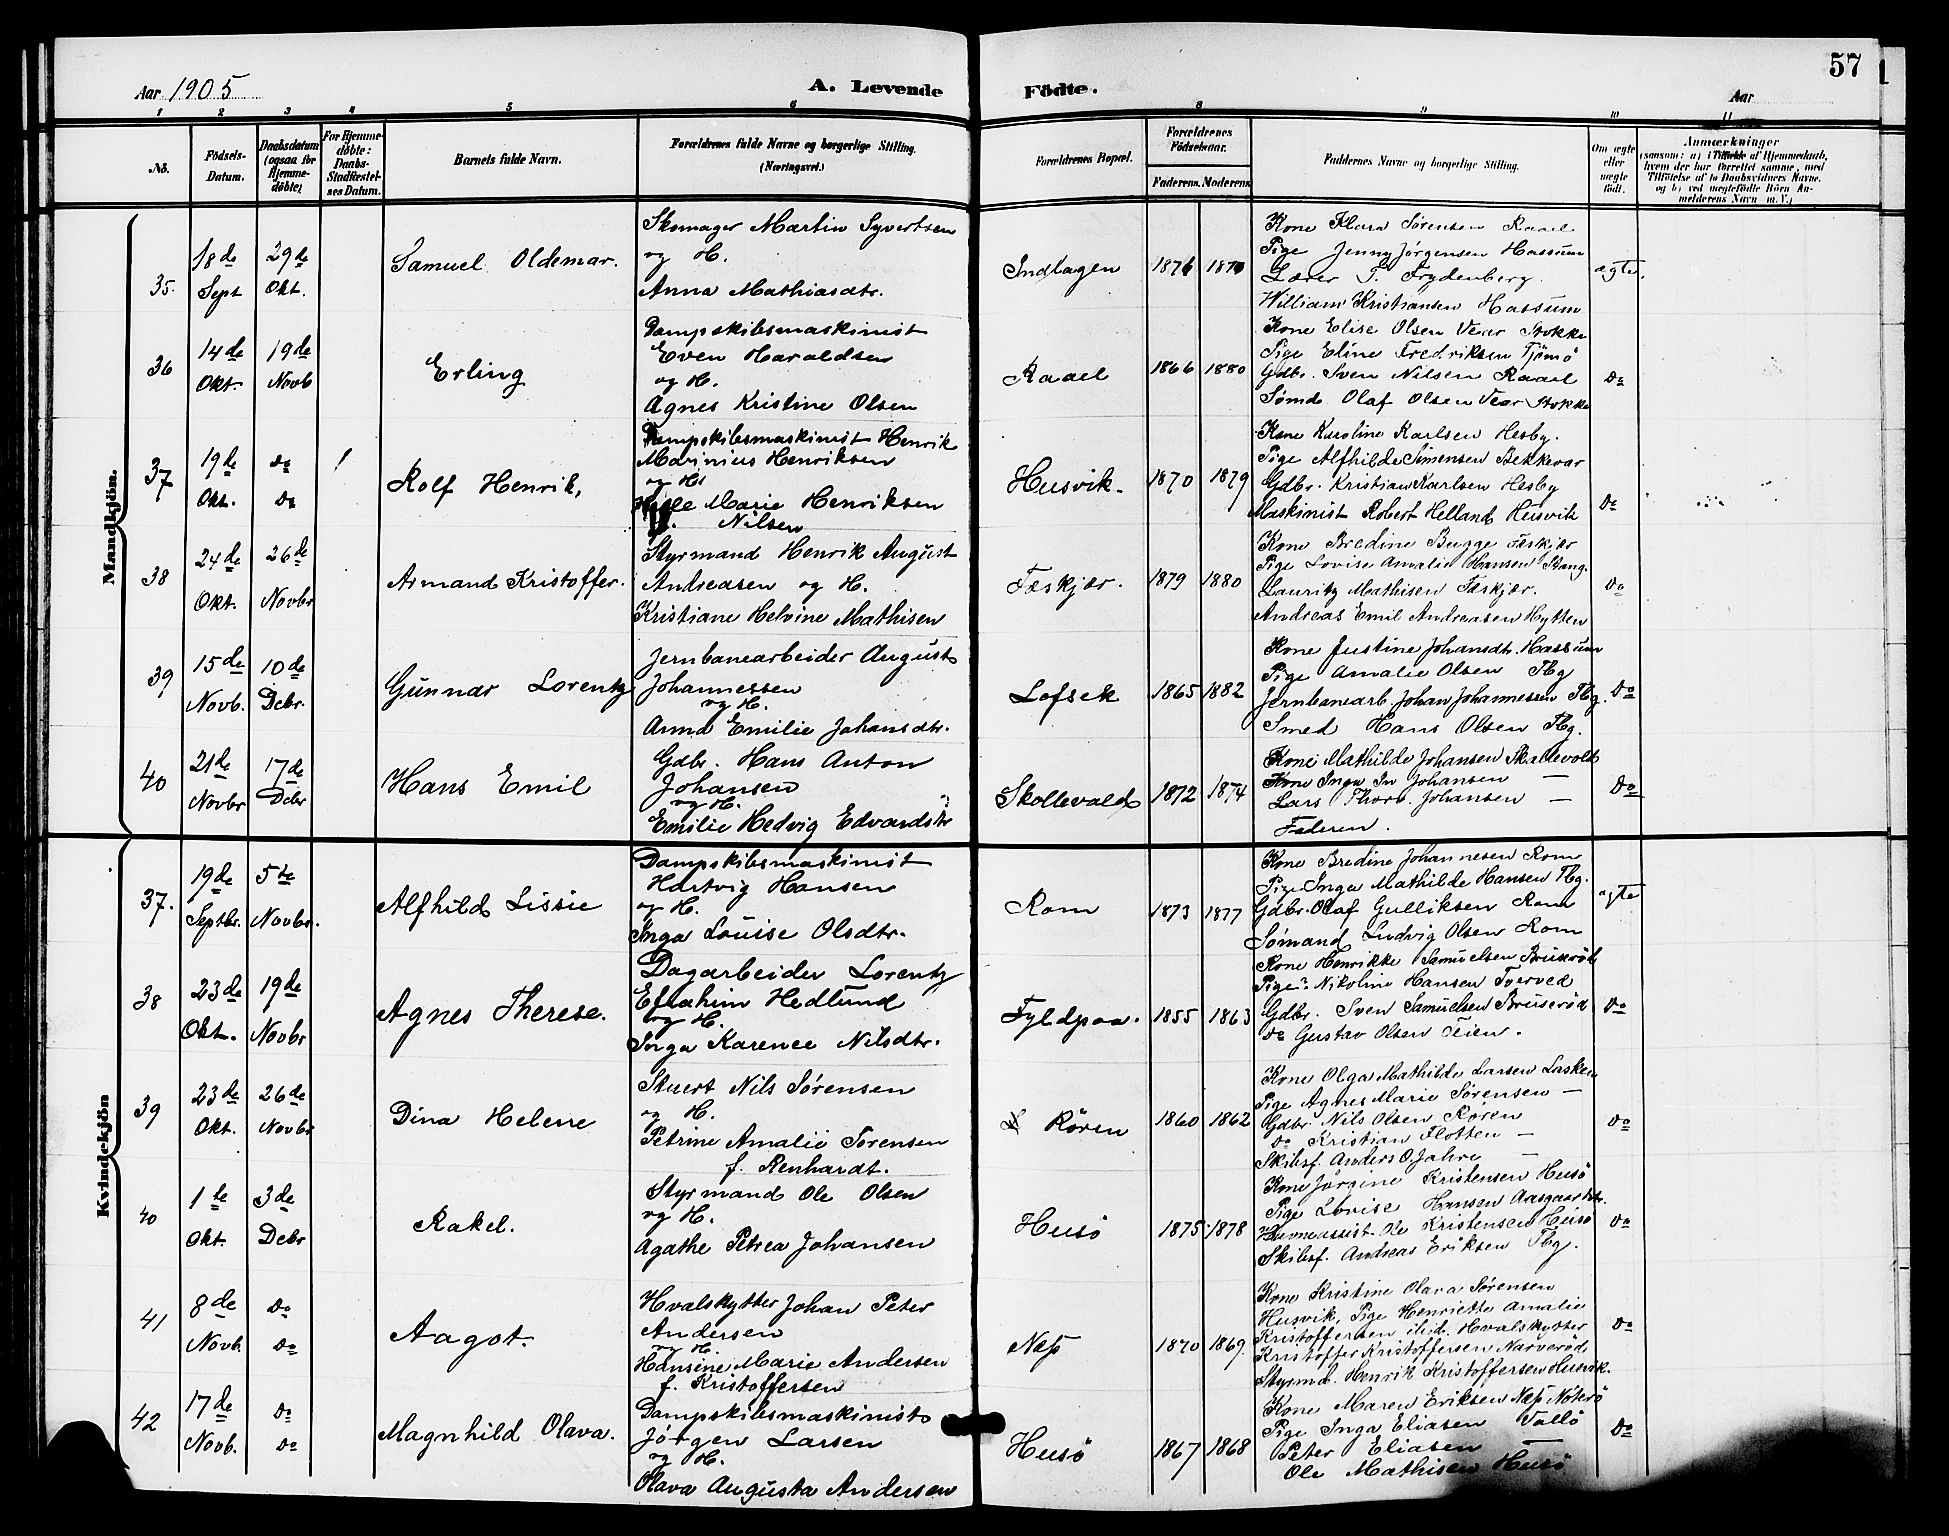 57
Aar 1905
A. Levende
Födte.
Aar
1 2 3 4 5 6 8 9 10 11
No.
Födsels-Datum.
Daabsdatum (ogsaa for Hjemmedöbte)
For Hjemmedöbte: Daabs-Stadfæstelses Datum.
Barnets fulde Navn.
Forældrenes fulde Navne og borgerlige Stilling. (Næringsvei.)
Forældrenes Bopæl.
Forældrenes Födselsaar.
Faderens. Moderens
Faddernes Navne og borgerlige Stilling.
Om ægte eller uægte født.
Anmærkninger
(saasom: a) i Tilfælde af Hjemmedaab,
hvem der har forrettet samme, med
Tilföielse af to Daabsvidners Navne.
og b) ved uægtefödte Börn An-
melderens Navn m.V.)
Mandkjön.
35.
18de Sept
29de Okt.
Samuel Oldemar.
Skomager Martin Syvertsen
og H.
Anna Mathiasdtr.
Indlagen
1876 1870
Kone Flora Sørensen Raael
Pige Jenny Jørgensen Hassum
Lærer T. Frydenberg.
William Kristiansen Hassum
ægte.
36
14de Okt.
19de Novb
Erling
Dampskibsmaskinist
Even Haraldsen
og H.
Agnes Kristine Olsen
Raael
1866 1880
Kone Elise Olsen Vear Stokke
Pige Eline Fredriksen Tjömö
Gdbr. Sven Nilsen Raael
Sömd Olaf Olsen Vear Stokke
Do
37
19de Okt.
Do Do
Rolf Henrik,
Dampskibsmaskinist Henrik
Marinius Henriksen
og H.
Marie Henriksen
Nilsen
Husvik.
1870 1879
Kone Karoline Karlsen Hesby.
Pige Alfhilde Simensen Bekkevar
Gdbr. Kristian Karlsen Hesby
Maskinist Robert Helland Husvik
Do
38
24de Okt.
26de Novbr
Armand Kristoffer.
Styrmand Henrik August
Andreasen og H.
Kristiane Helvine Mathisen
Fæskjær.
1879 1880
Kone Bredine Bugge Fæskjær
Pige Lovise Amalie Hansen Stang.
Lauritz Mathisen Fæskjær.
Andreas Emil Andreasen Hytten
Do
39
15de Novb.
10de Debr
Gunnar Lorentz
Jernbanearbeider August
Johannessen
og H.
Anna Emilie Johansdtr.
Lofsek
1865 1882
Kone Justine Johansdt. Hassum
Pige Amalie Olsen Tbg
Jernbanearb Johan Johannessen Tbg.
Smed Hans Olsen Tbg.
Do
40
21de Novbr
17de Debr
Hans Emil
Gdbr. Hans Anton
Johansen
og H.
Emilie Hedvig Edvardsdtr
Skollevald
1872 1874
Kone Mathilde Johansen Skallevold
Kone Inga Johansen —
Lars Thorv. Johansen —
Faderen.
Do
Kvindekjön
37.
19de Septbr.
5te Novbr.
Alfhild Lissie
Dampskibsmaskinist
Hartvig Hansen
og H.
Inga Louise Olsdtr.
Rom
1873 1877
Kone Bredine Johannesen Rom
Pige Inga Mathilde Hansen Tbg.
Gdbr. Olaf Gulliksen Rom
Sömand Ludvig Olsen Rom
ægte
38
23de Okt.
19de Novbr
Agnes Therese.
Dagarbeider Lorentz
Efrahim Hedlund
og H.
Inga Karence Nilsdtr.
Fyldpaa.
1855 1863
Kone Henrikke Samuelsen Bruserød
Pige Nikoline Hansen Tverved
Gdbr. Sven Samuelsen Bruserød
Do Gustav Olsen Teien.
Do
39
23de Okt.
26de Novbr
Dina Helene
Stuert Nils Sørensen
og H.
Petrine Amalie Sørensen
f. Renhardt.
Røren
1860 1862
Kone Olga Mathilde Larsen Lasken
Pige Agnes Marie Sørensen —
Gdbr Nils Olsen Røren
Do Kristian Flotten —
Skibsf. Anders O. Jahre —
Do
40
1te Okt.
3de Debr
Rakel.
Styrmand Ole Olsen
og H.
Agathe Petrea Johansen
Husö
1875 1878
Kone Jørgine Kristensen Husö
Pige Lovise Hansen Aasgaardstr.
Havneassist. Ole Kristensen Husö
Skibsf. Andreas Eriksen Tbg.
Do
41
8de Novb.
Do Do
Aagot.
Hvalskytter Johan Peter
Andersen
og H.
Hansine Marie Andersen
f. Kristoffersen
Nes
1870 1869
Kone Kristine Olava Sørensen
Husvik, Pige Henriette Amalie
Kristoffersen ibid. Hvalskytter
Kristoffer Kristoffersen Narverød
Styrmd. Henrik Kristoffersen Husvik.
Do
42
17de Novb.
Do Do
Magnhild Olava.
Dampskibsmaskinist
Jörgen Larsen
og H.
Olava Augusta Andersen
Husö
1867 1868
Kone Maren Eriksen Nes Nøterö
Pige Inga Eliasen Tallö
Peter Eliasen —
Ole Mathisen Husö
Do